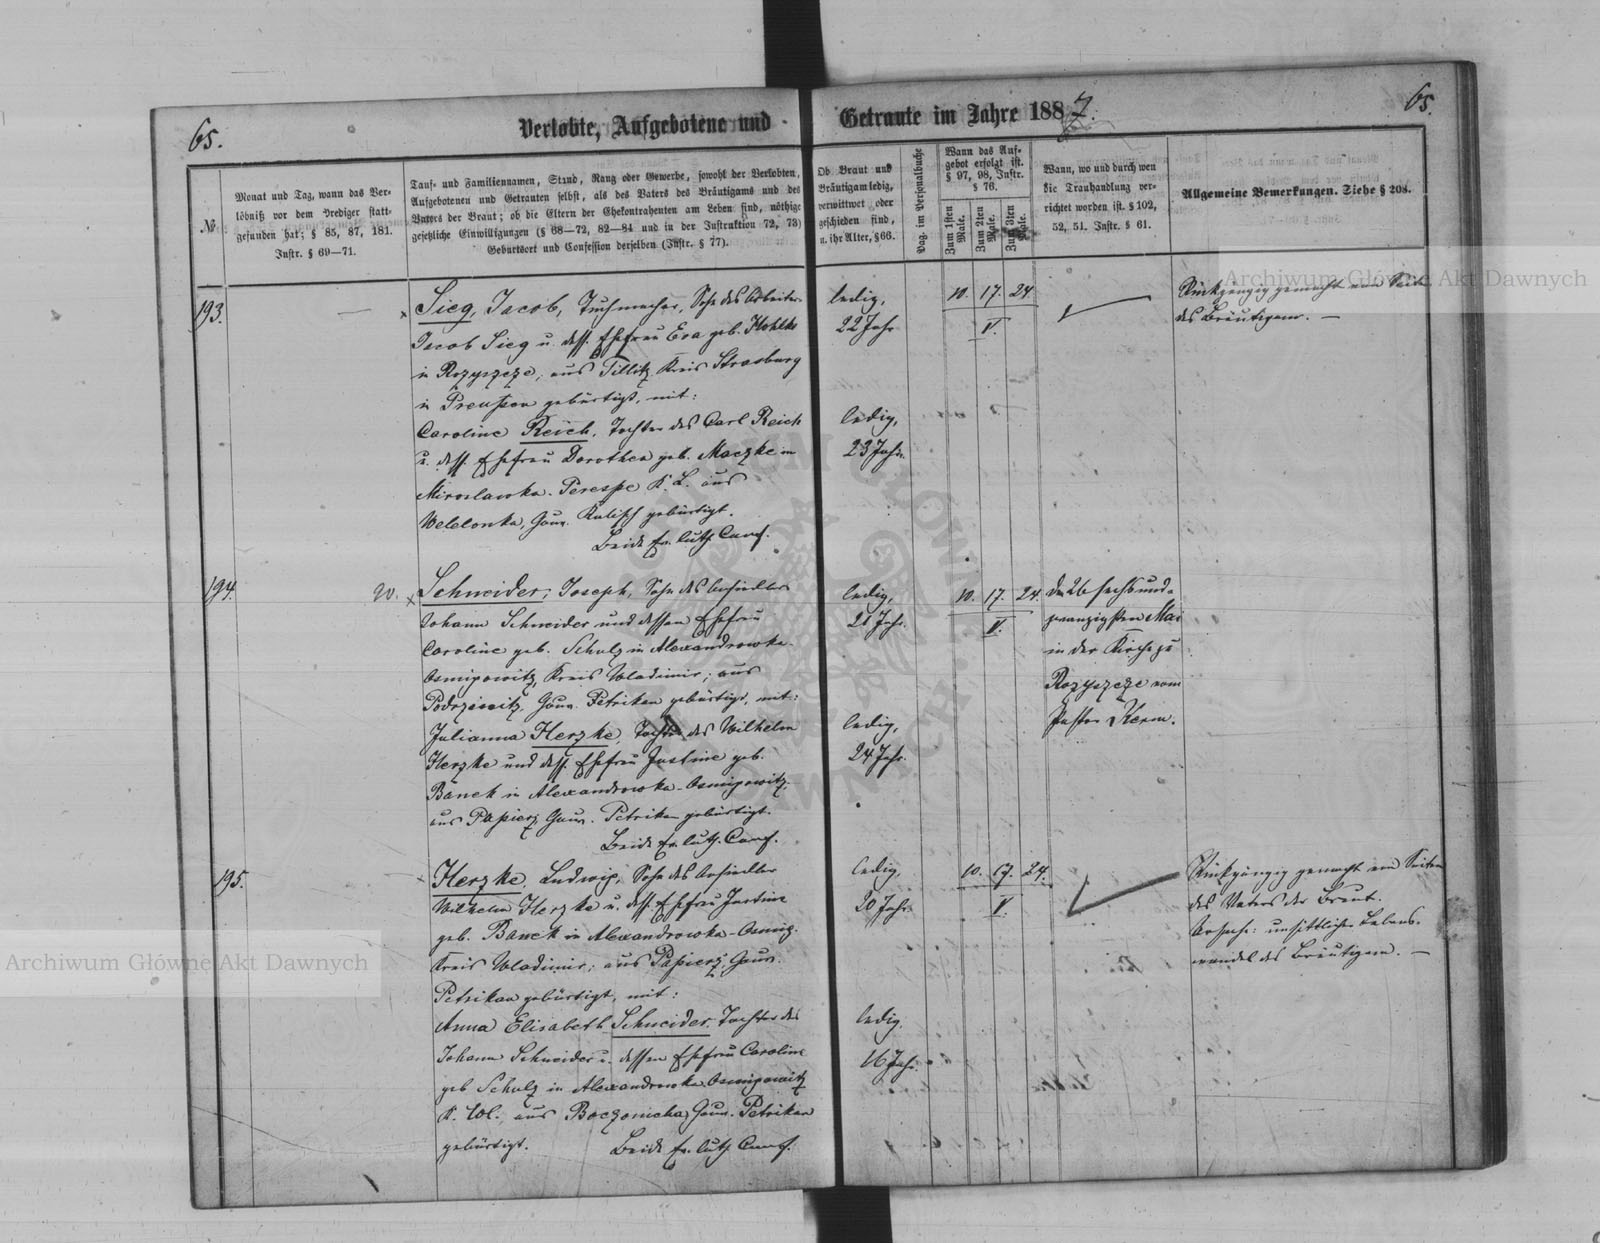 65.
Verlobte, Aufgebotene und
Getraute im Jahre 1887.
65.
№
Monat und Tag, wann das Ver-
löbniß vor dem Prediger statt-
gefunden hat; § 85, 87, 181.
Instr. § 69—71.
Tauf- und Familiennamen, Stand, Rang oder Gewerbe, sowohl der Verlobten,
Aufgebotenen und Getrauten selbst, als des Vaters des Bräutigams und des
Vaters der Braut; ob die Eltern der Ehekontrahenten am Leben sind, nöthige
gesetzliche Einwilligungen (§ 68—72, 82—84 und in der Instruktion 72, 73)
Geburtsort und Confession derselben (Instr. § 77).
Ob Braut und
Bräutigam ledig,
verwittwet oder
geschieden sind,
u. ihr Alter, § 66.
Pag. im Personalbuche
Wann das Auf-
gebot erfolgt ist.
§ 97, 98, Instr.
§ 76.
Zum 1sten Male.
Zum 2ten Male.
Zum 3ten Male.
Wann, wo und durch wen
die Trauhandlung ver-
richtet worden ist. § 102,
52, 51. Instr. § 61.
Allgemeine Bemerkungen. Siehe § 208.
193.
—
Sieg, Jacob, Tuchmacher, Sohn des Arbeiters
Jacob Sieg u. dess. Ehefrau Eva geb. Kohlke
in Rozyszcze, aus Tillitz Kreis Strasburg
in Preußen gebürtigt, mit:
Caroline Reich, Tochter des Carl Reich
u. dess. Ehefrau Dorothea geb. Maczke in
Miroslawka-Perespe K. L. aus
Gouv. Kalisch gebürtigt.
Beide Ev. luth. Conf.
ledig,
22 Jahr
ledig,
23 Jahr.
10. 17. 24
V.
Rückgängig gemacht von Seiten
des Bräutigam. —
194.
20.
Schneider, Joseph, Sohn des Ansiedlers
Johann Schneider und dessen Ehefrau
Caroline geb. Schulz in Alexandrowka-
Osmigowitz, Kreis Wladimir; aus
Gouv. Petrikau gebürtigt, mit:
Julianna Herzke, Tochter des Wilhelm
Herzke und dess. Ehefrau Justine geb.
Banek in Alexandrowka-Osmigowitz,
aus Papierz Gouv. Petrikau gebürtigt.
Beide Ev. luth. Conf.
ledig,
21 Jahr.
ledig,
24 Jahr.
10. 17. 24.
V.
Den 26 sechsund-
zwanzigsten Mai
in der Kirche zu
Rozyszcze vom
Pastor Kerm.
195.
Herzke, Ludwig, Sohn des Ansiedler
Wilhelm Herzke u. dess. Ehefrau Justine
geb. Banek in Alexandrowka-Osmig.
Kreis Wladimir; aus Papierz, Gouv.
Petrikau gebürtigt, mit:
Anna Elisabeth Schneider, Tochter des
Johann Schneider u. dessen Ehefrau Caroline
geb Schulz in Alexandrowka Osmigowitz
K. Wl., aus Gouv. Petrikau
gebürtigt.
Beide Ev. luth Conf.
ledig,
20 Jahr.
ledig.
16 Jahr.
10. 17. 24.
V.
Rückgängig gemacht von Seiten
des Vaters der Braut.
Ursache: unsittlicher Lebens-
wandel des Bräutigam. —
Archiwum Główne Akt Dawnych
Archiwum Główne Akt Dawnych